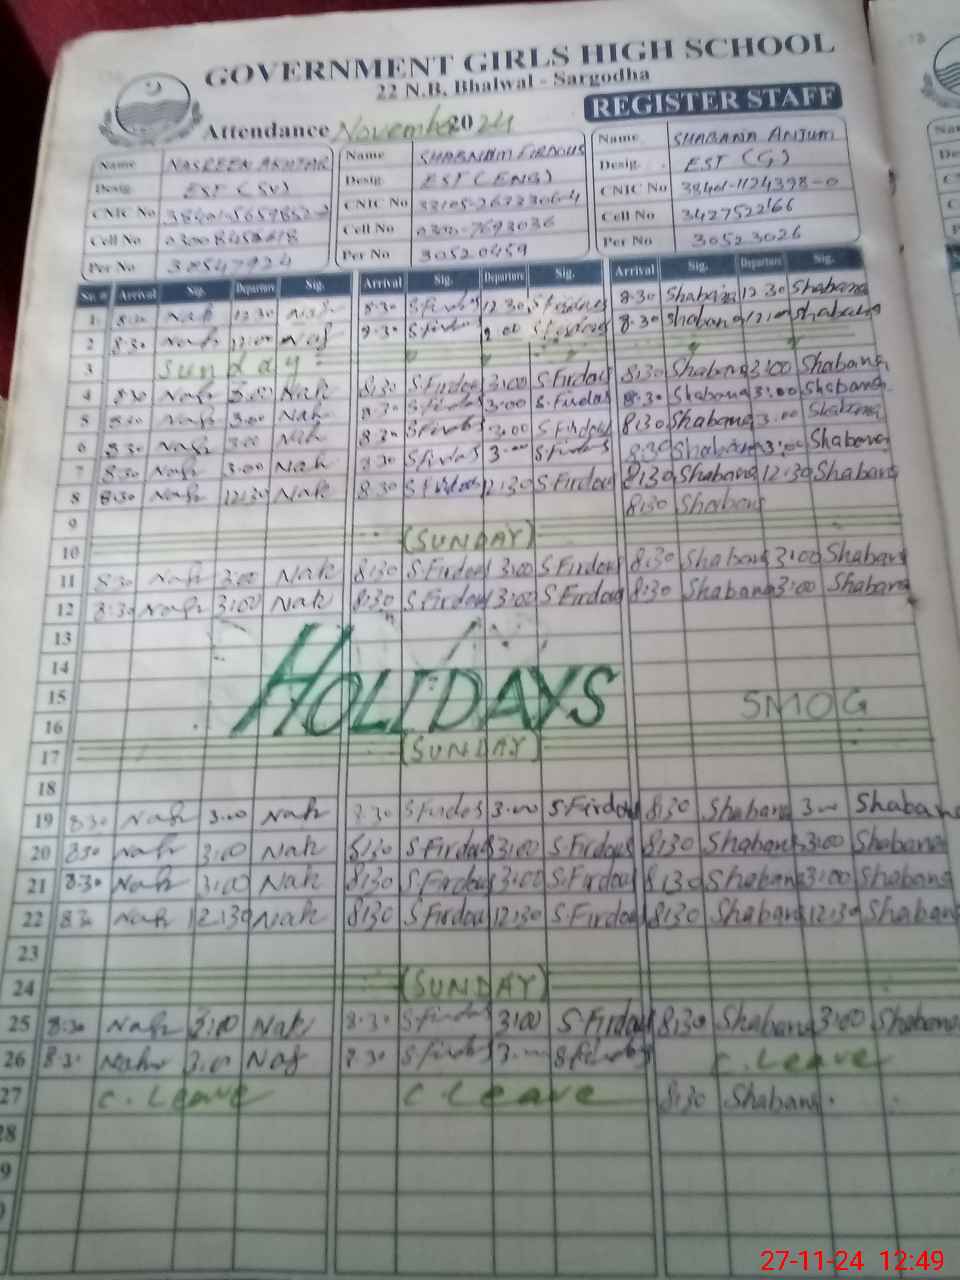 GOVERNMENT GIRLS HIGH SCHOOL
22 N.B, Bhalwal - Sargodha
REGISTER STAFF
Attendance November 2024
Name NASREEN AKHTAR Name SHABNAM FIRDOUS Name SHABANA ANJUM
Desig EST ( Desig. EST (ENG) Desig. EST (G)
CNIC No CNIC No CNIC No 38401-1124398-0
Cell No Cell No 0300-7693036 Cell No 3427522166
Per No 30547924 Per No 30520459 Per No 30523026
Arrival Sig. Departure Sig. Arrival Sig. Departure Sig. Arrival Sig. Departure Sig.
1 8:30 Nah 12:30 8:30 S Firdous 12:30 8:30 Shabana 12:30 Shabana
2 8:30 Nah 12:00 8:30 8:30 Shabana Shabana
3 Sunday
4 8:30 Nah 3:00 Nah 8:30 S Firdous 3:00 S.Firdous 8:30 Shabana 3:00 Shabana
5 8:30 Nah 3:00 Nah 8:30 S Firdous 3:00 S.Firdous 8:30 Shabana 3:00 Shabana
6 8:30 Nah 3:00 Nah 8:30 S Firdous 3:00 S Firdous 8:30 Shabana 3:00 Shabana
7 8:30 Nah 3:00 Nah 8:30 S Firdous 3:00 S Firdous 8:30 Shabana 3:00 Shabana
8 8:30 Nah 12:30 Nah 8:30 S Firdous 12:30 S Firdous 8:30 Shabana 12:30 Shabana
9 8:30 Shabana
10 (SUNDAY)
11 8:30 Nah 3:00 Nah 8:30 S Firdous 3:00 S Firdous 8:30 Shabana 3:00 Shabana
12 8:30 Nah 3:00 Nah 8:30 S Firdous 3:00 S Firdous 8:30 Shabana 3:00 Shabana
13
14
15 HOLIDAYS SMOG
16
17 (SUNDAY)
18
19 8:30 Nah 3:00 Nah 8:30 S Firdous 3:00 S Firdous 8:30 Shabana 3:00 Shabana
20 8:30 Nah 3:00 Nah 8:30 S Firdous 3:00 S Firdous 8:30 Shabana 3:00 Shabana
21 8:30 Nah 3:00 Nah 8:30 S Firdous 3:00 S Firdous 8:30 Shabana 3:00 Shabana
22 8:30 Nah 12:30 Nah 8:30 S Firdous 12:30 S.Firdous 8:30 Shabana 12:30 Shabana
23
24 (SUNDAY)
25 8:30 Nah 3:00 Nah 8:30 S Firdous 3:00 S Firdous 8:30 Shabana 3:00 Shabana
26 8:30 Nah 3:00 Nah 8:30 S Firdous 3:00 S Firdous C. Leave
27 C. Leave C Leave 8:30 Shabana
28
27-11-24 12:49